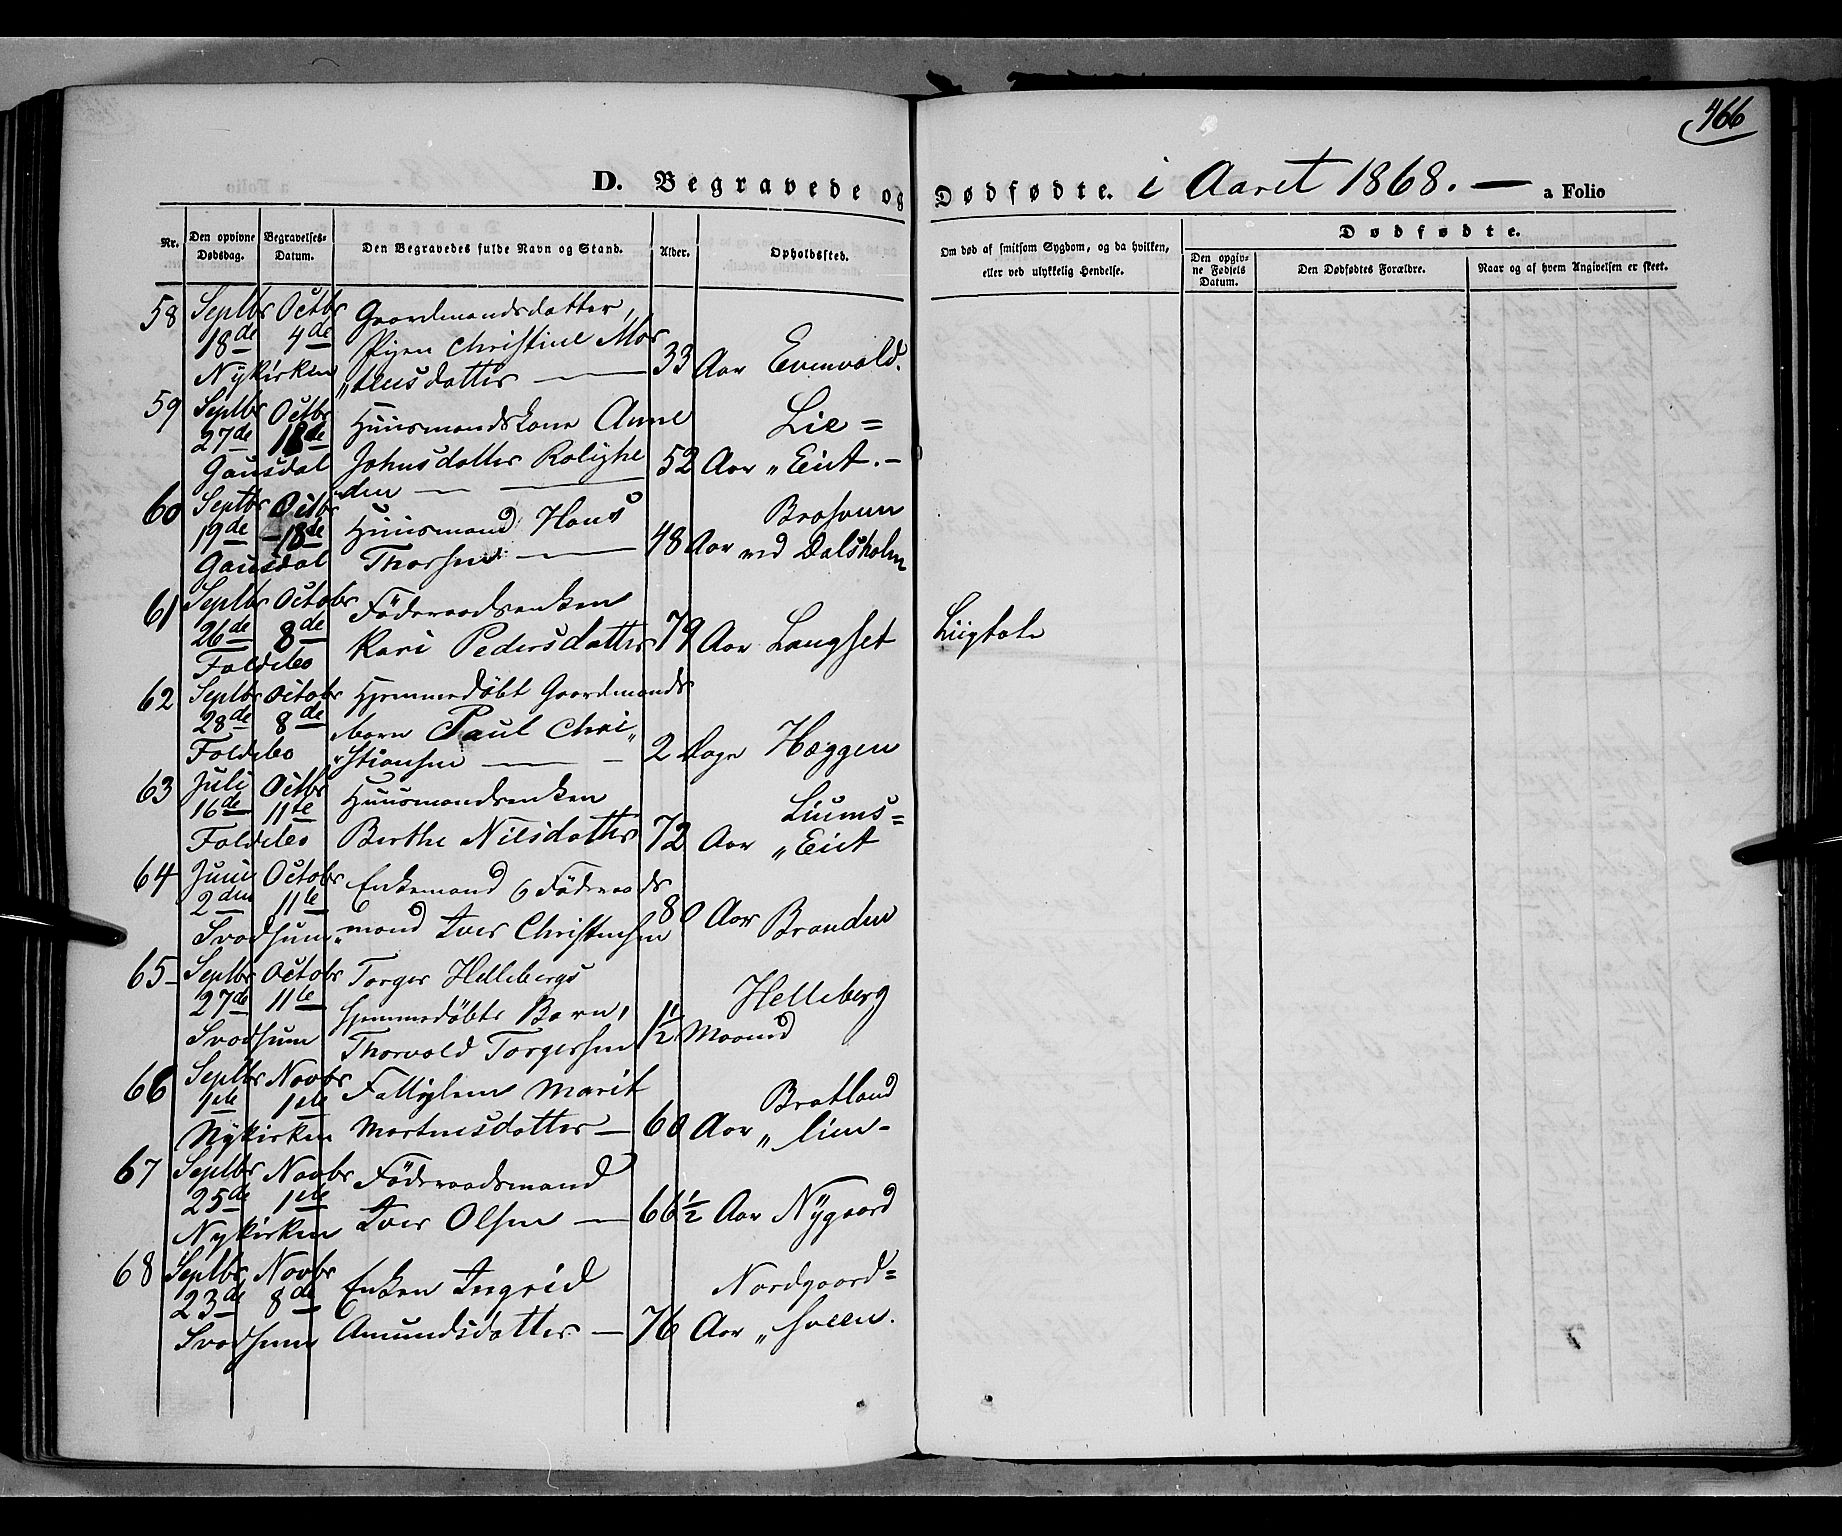 466
D. Begravede og Dødfødte. i Aaret 1868. — a Folio
Nr. Den opgivne Dødsdag. Begravelses-Datum. Den Begravedes fulde Navn og Stand. Alder. Opholdssted. Om død af smitsom Sygdom, og da hvilken, eller ved ulykkelig Hendelse.
Dødfødte.
Den opgivne Fødsels Datum. Den Dødfødtes Forældre. Naar og af hvem Angivelsen er skeet.
58 Septbr Octbr Gaardmandsdatter,
18de 4de Christine Mor
Nykirken „tensdatter — 33 Aar Evenvold.
59 Septbr Octbr Huusmandskone Anne Lie=
27de 18de Johnsdatter Rolighe 52 Aar „Eiet.-
Gausdal „den —
60 Septbr Octbr Huusmand Hans Brosveen
19de 18de Thorsen — 48 Aar ved Dalsholm
Gausdal
61 Septbr Octobr Föderaadsenken
26de 8de Kari Pedersdatter 79 Aar Langset
Foldebo
62 Septbr Octobr Hjemmedöbt Gaardmands
28de 8de barn Paul Chri„
Foldebo „stiansen — 2 Dage Hæggen
63 Juli Octbr Huusmandsenken Liums=
16de 11te Berthe Nilsdatter 72 Aar „Eiet
Foldebo
64 Juni Octobr Enkemand og Föderaads
2den 11te „mand Iver Christensen 80 Aar Branden
Svadsum
65 Septbr Octobr Torger Hellebergs
27de 11te hjemmedöbte Barn, Helleberg
Svadsum Thorvald Torgersen 1½ Maaned
66 Septbr Novbr Fattiglem Marit Bratland
1ste 1ste Mortensdatter — 60 Aar „lien-
Nykirken
67 Septbr Novbr Föderaadsmand
25de 1ste Iver Olsen — 66½ Aar Nygaard
Nykirken
68 Septbr Novbr Enken Ingrid Nordgaard=
23de 8de Amundsdatter. — 76 Aar „sveen.
Svadsum